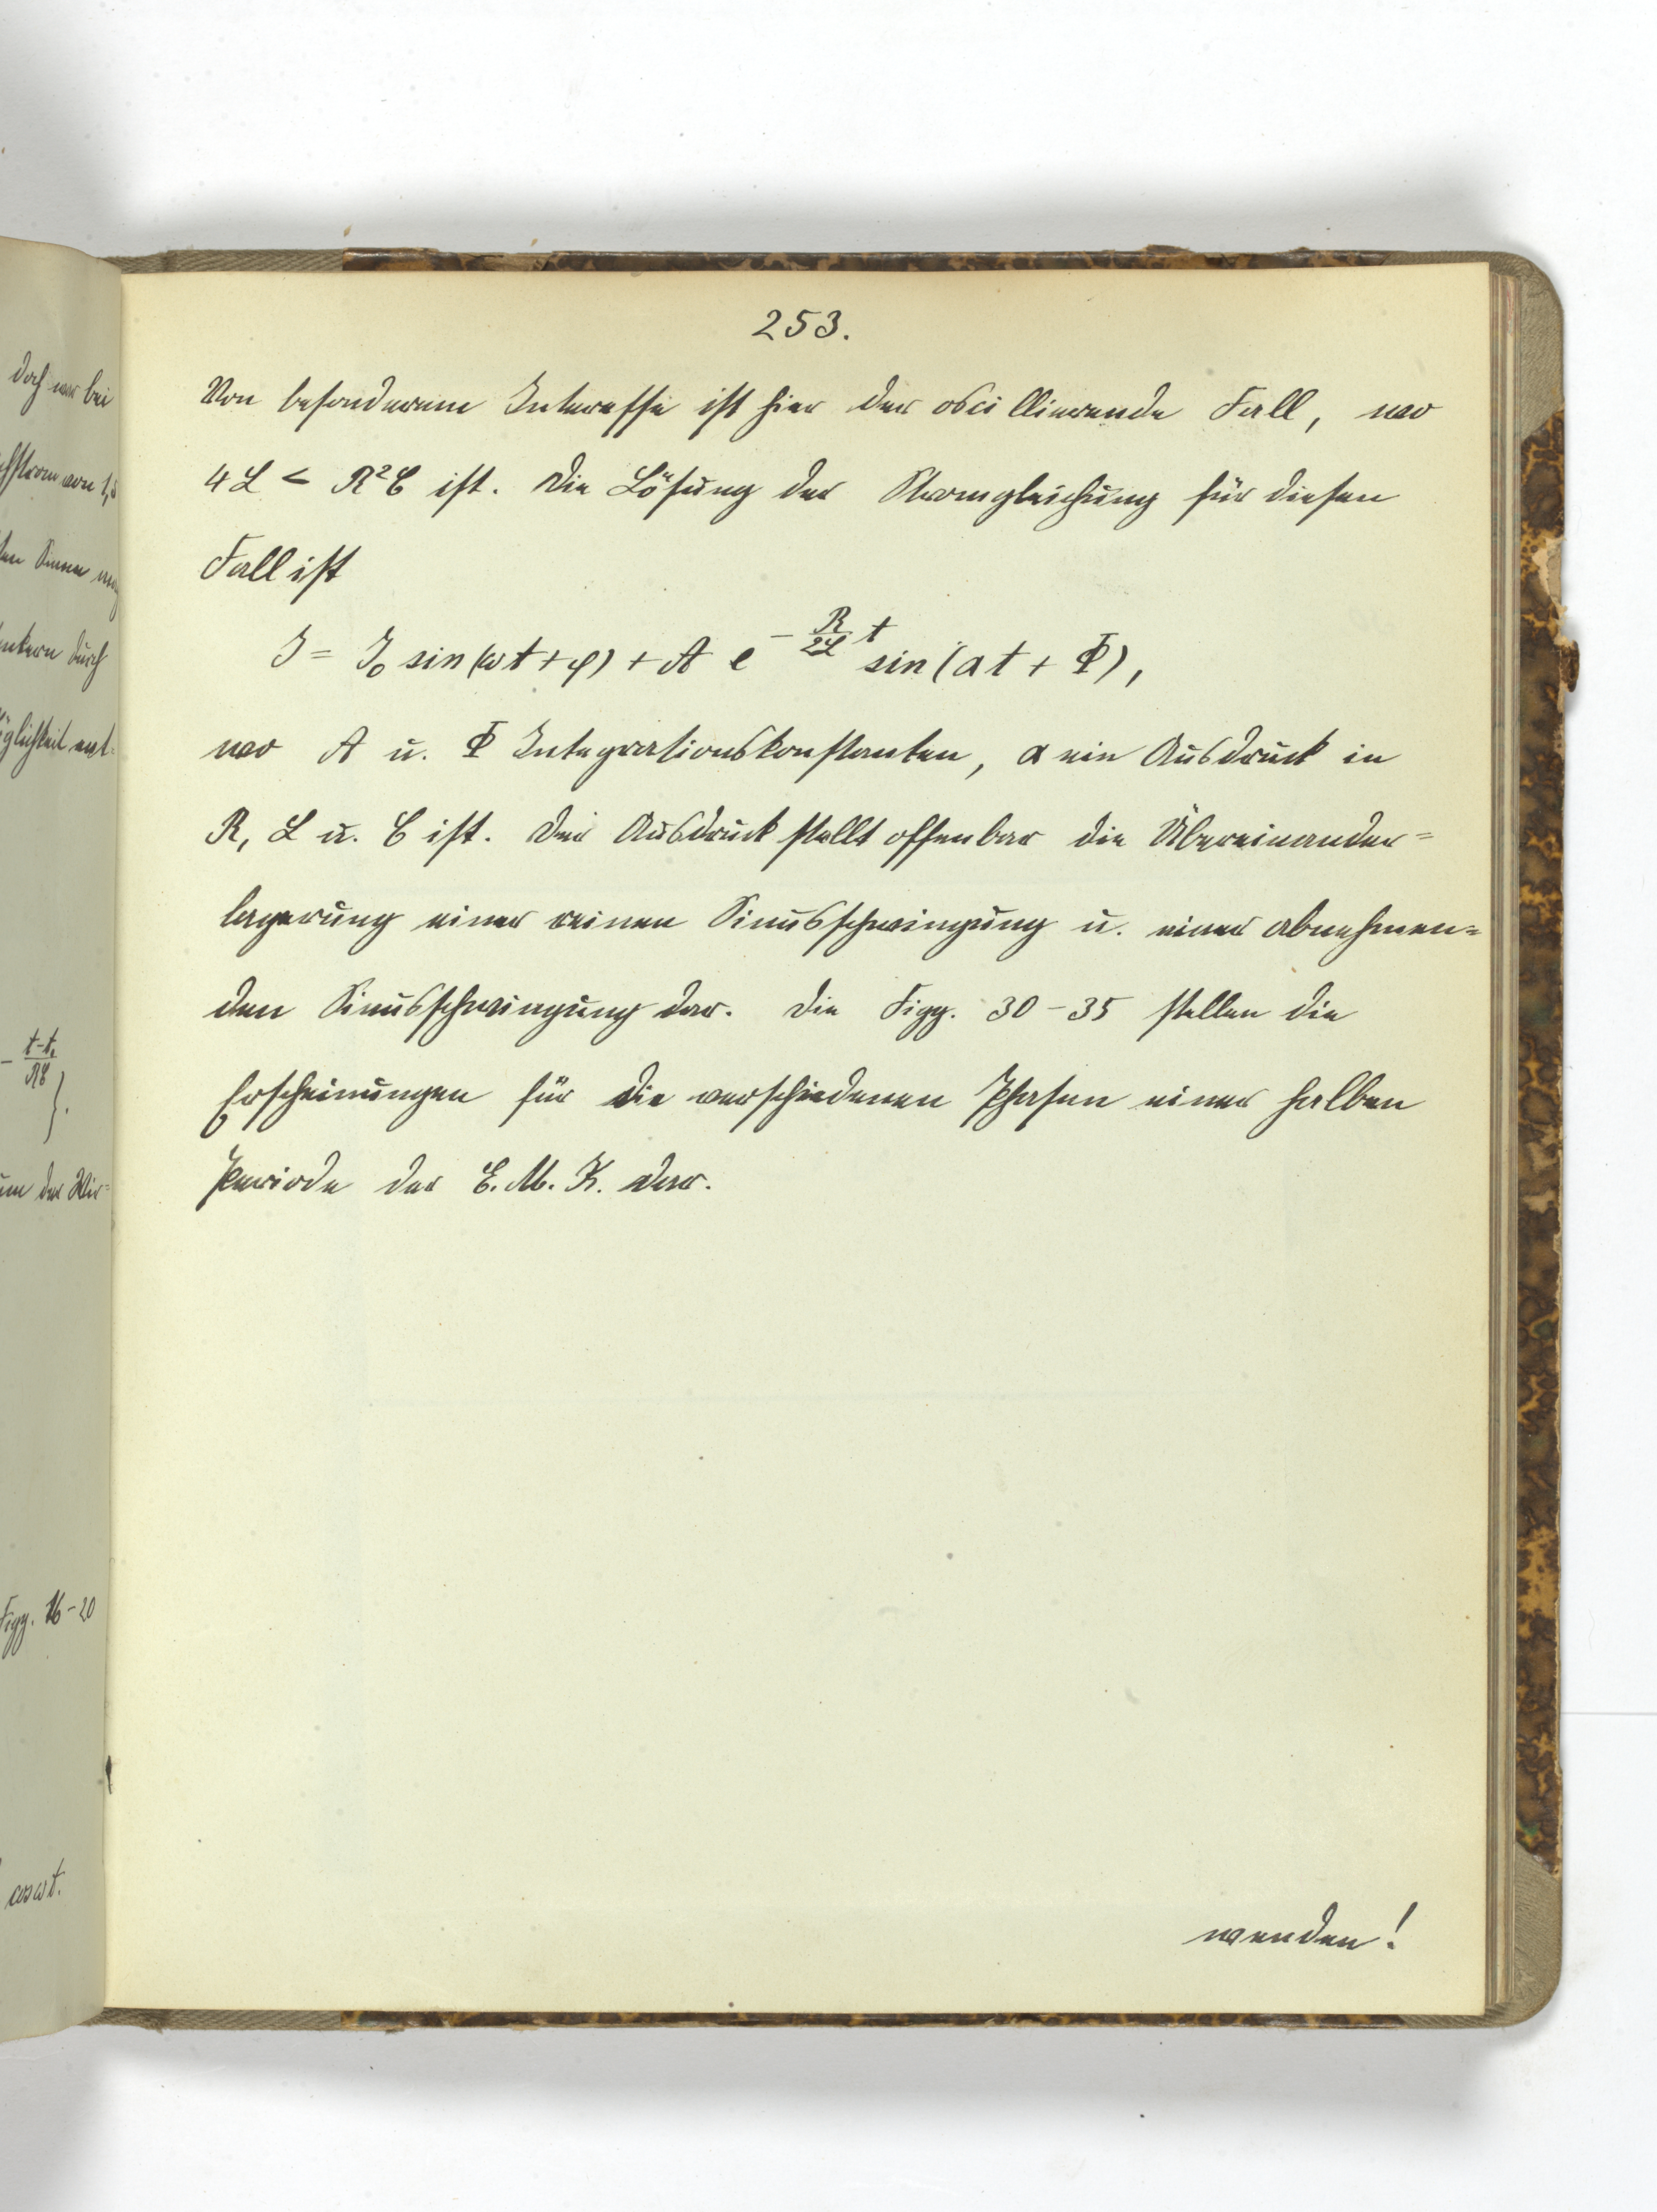 253.
Von besonderem Interesse ist hier der oscillierende Fall, wo
4L < R²C ist. Die Lösung der Stromgleichung für diesen
Fall ist
J = J₀ sin(ωt + φ) + A e^{-\frac{R}{2L}t} sin(αt + Φ),
wo A u. Φ Integrationskonstanten, α ein Ausdruck in
R, L u. C ist. Der Ausdruck stellt offenbar die Übereinander=
lagerung einer reinen Sinusschwingung u. einer abnehmen=
den Sinusschwingung dar. Die Figg. 30-35 stellen die
Erscheinungen für die verschiedenen Phasen einer halben
Periode der E. M. K. dar.
wenden!
doch nur bei
strom von 1,5
Sinne
durch
öglichkeit ent=
- \frac{t-t₁}{RC}
}.
um der Wir=
Figg. 16-20
cos ωt.